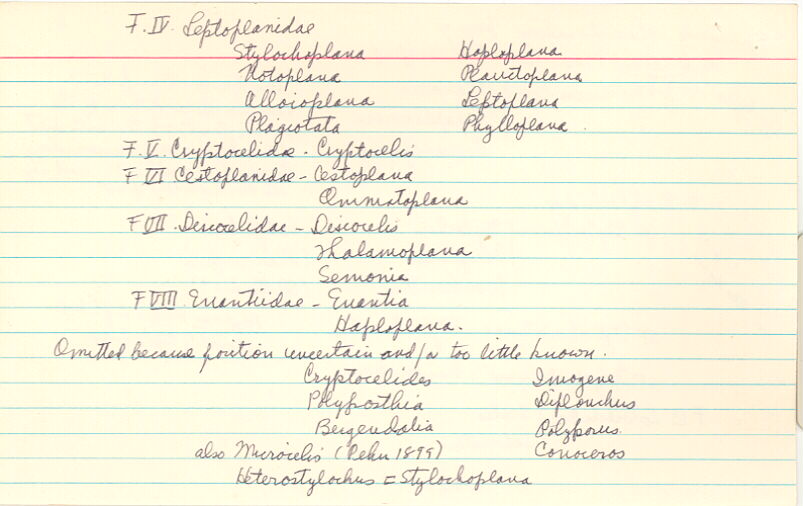 F. IV. Leptoplanidae
Stylochoplana Haploplana
Notoplana Planctoplana
Alloioplana Leptoplana
Plagiotata Phylloplana.
F. V. Cryptocelidae - Cryptocelis
F VI Cestoplanidae - Cestoplana
Ommatoplana
F VII. Discocelidae - Discocelis
Thalamoplana
Semonia
F VIII. Enantiidae - Enantia
Haploplana.
Omitted because position uncertain and/or too little known.
Cryptocelides Imogene
Polyposthia Diplonchus
Bergendalia Polyporus
also Microcelis (Pehn 1899) Conoceros
Heterostylochus = Stylochoplana